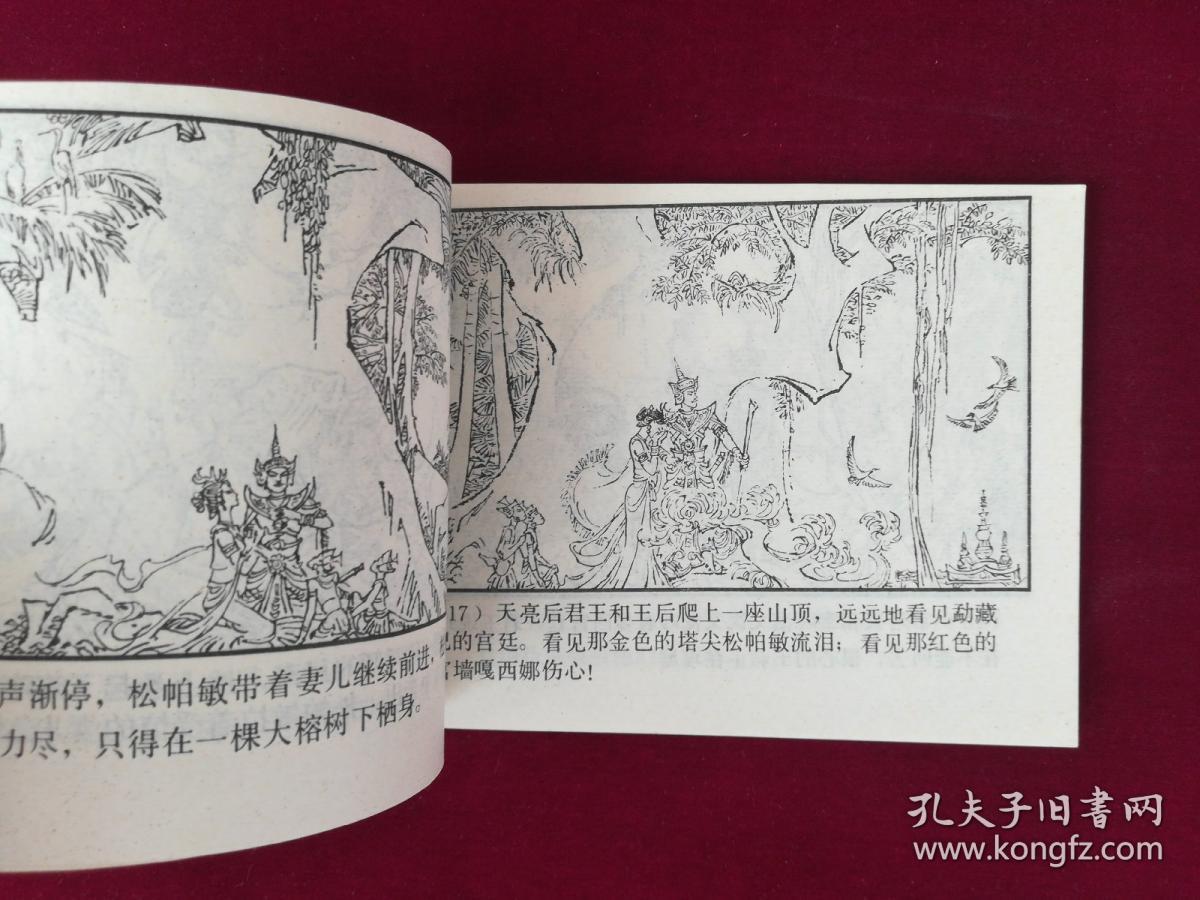 声渐停，松帕敏带着妻儿继续前进，
力尽，只得在一棵大榕树下栖身。
17）天亮后君王和王后爬上一座山顶，远远地看见勐藏
的宫廷。看见那金色的塔尖松帕敏流泪；看见那红色的
宫墙嘎西娜伤心！
孔夫子旧书网
www.kongfz.com